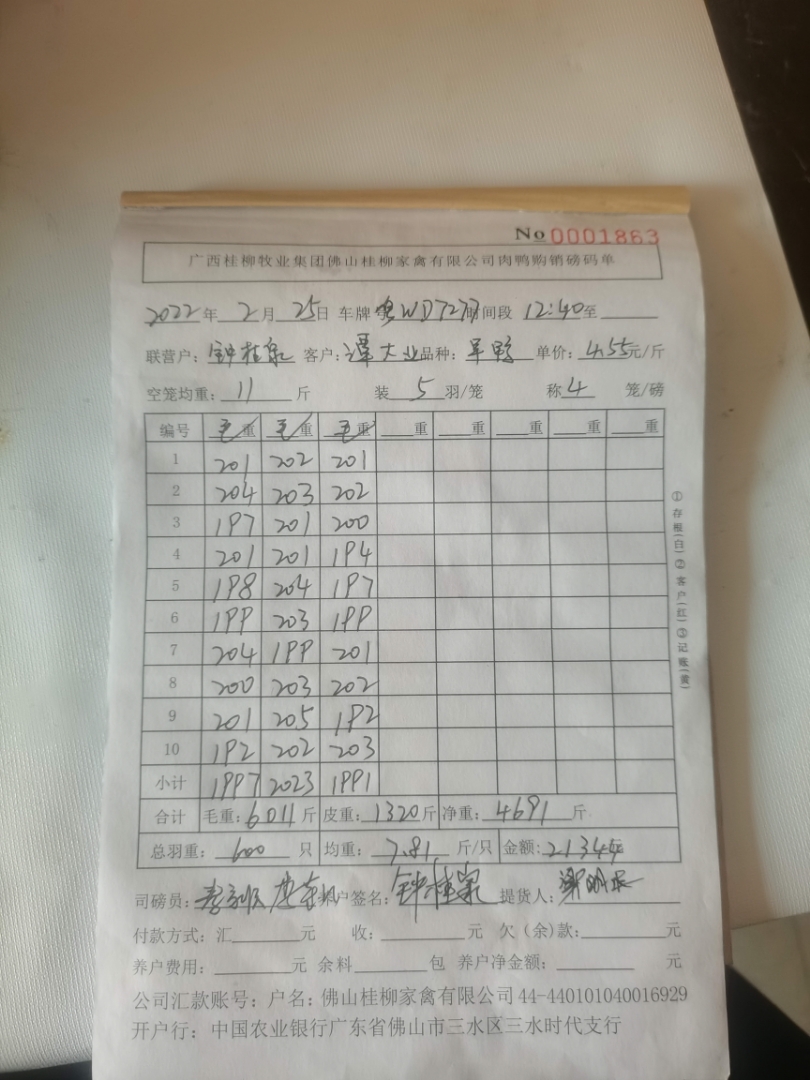 No 0001863
广西桂柳牧业集团佛山桂柳家禽有限公司肉鸭购销磅码单
2022年 2月 25日 车牌 粤WD7277 时间段 12:40至
联营户: 钟桂泉 客户: 谭大业 品种: 单价: 4.55元/斤
空笼均重: 11 斤 装 5 羽/笼 称 4 笼/磅
编号 毛重 毛重 毛重 重 重 重 重 重
1 201 202 201
2 204 203 202
3 197 201 200
4 201 201 194
5 198 204 197
6 199 203 199
7 204 199 201
8 200 203 202
9 201 205 192
10 192 202 203
小计 1997 2023 1991
合计 毛重: 6011 斤 皮重: 1320 斤 净重: 4691 斤
总羽重: 600 只 均重: 7.81 斤/只 金额: 21344
①存根(白)②客户(红)③记账(黄)
司磅员: 户签名: 提货人:
付款方式: 汇 元 收: 元 欠(余)款: 元
养户费用: 元 余料 包 养户净金额: 元
公司汇款账号: 户名: 佛山桂柳家禽有限公司 44-440101040016929
开户行: 中国农业银行广东省佛山市三水区三水时代支行